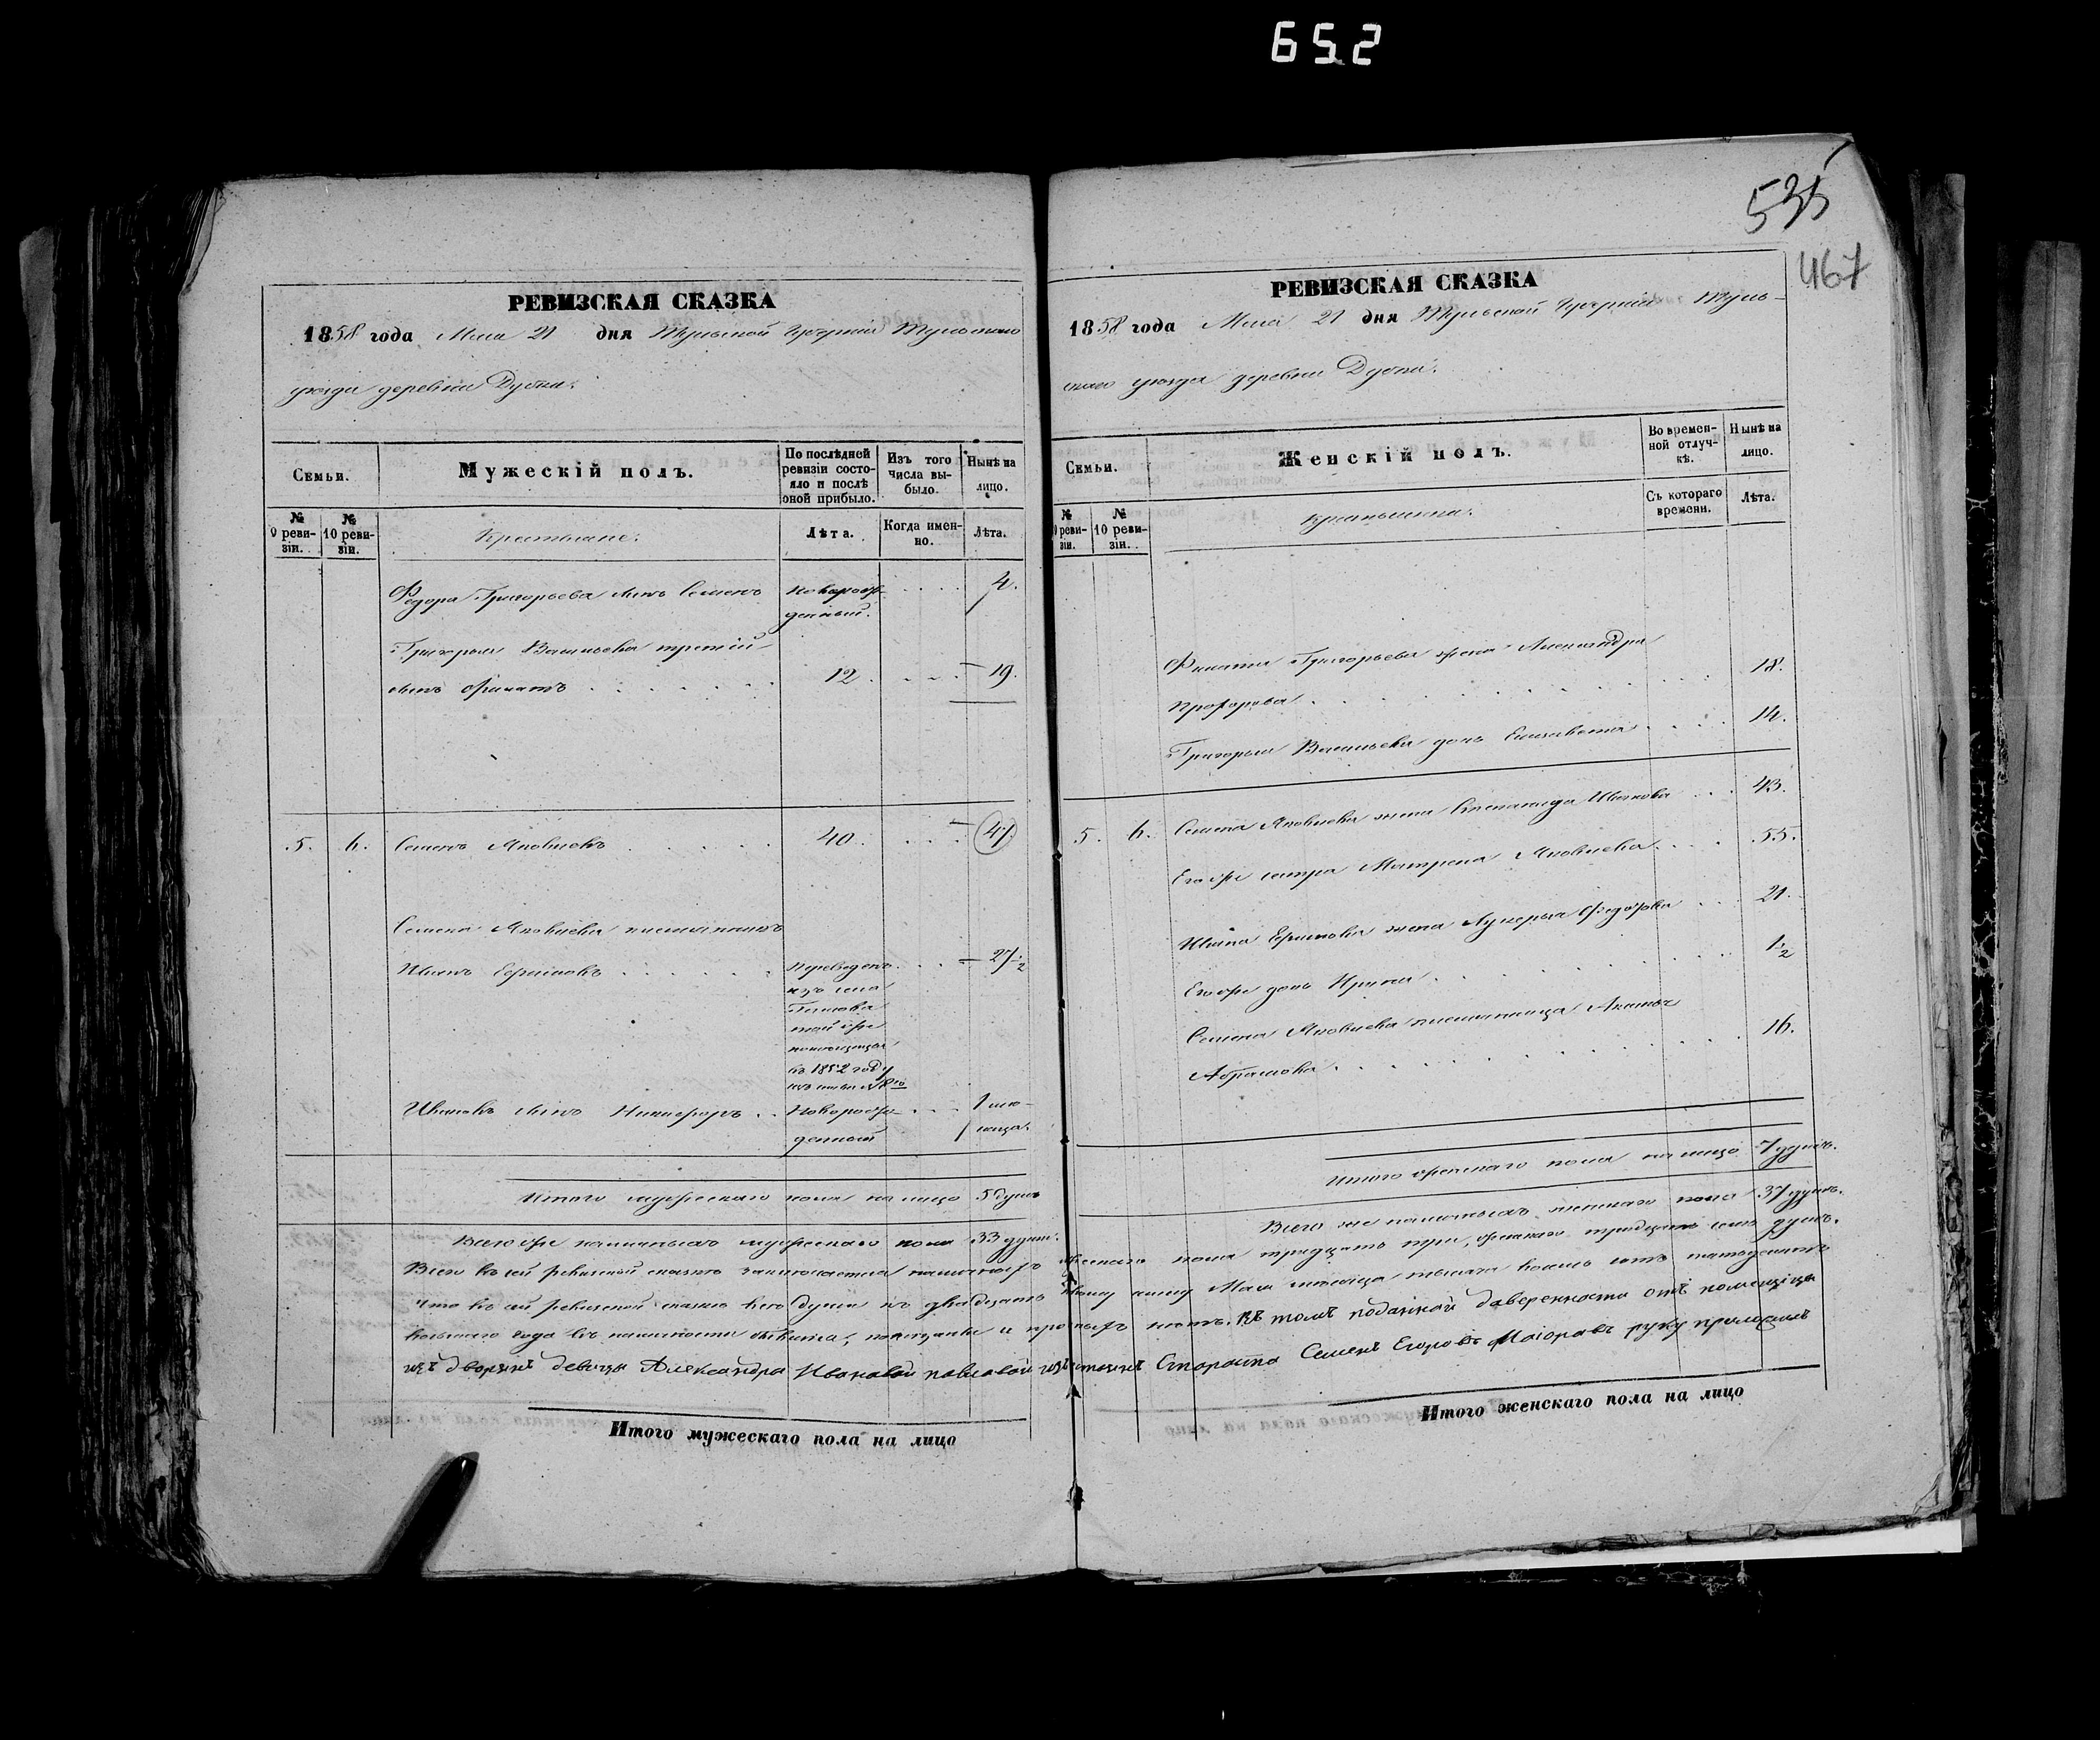 652
535
467
РЕВИЗСКАЯ СКАЗКА
1858 года Мая 21 дня Тульской Губерніи Тульскаго
уѣзда деревни Дубки.
Семьи.
Мужескій полъ.
По послѣдней ревизіи состояло и послѣ оной прибыло.
Изъ того числа выбыло.
Нынѣ на лицо.
№ 9 ревизіи.
№ 10 ревизіи.
Крестьяне.
Лѣта.
Когда именно.
Лѣта.
Федора Григорьева сынъ Семенъ новорож- 4.
денный.
Григорья Васильева третій
сынъ Филатъ 12. 19.
5. 6. Семенъ Яковлевъ 40. 47
Семена Яковлева племянникъ
Иванъ Ефимовъ Переведенъ 27 1/2
изъ села
той же
помещицы
въ 1852 году
Ивановъ сынъ Никифоръ Новорож- 1 мѣ-
денный сяца.
Итого мужескаго пола на лицо 5 душъ
Всего же наличныхъ мужескаго пола 33 души.
Итого мужескаго пола на лицо
РЕВИЗСКАЯ СКАЗКА
1858 года Мая 21 дня Тульской Губерніи Туль-
скаго уѣзда деревни Дубки.
Семьи.
Женскій полъ.
Во временной отлучкѣ.
Нынѣ на лицо.
№ 9 ревизіи.
№ 10 ревизіи.
Крестьянки.
Съ котораго времени.
Лѣта.
Филата Григорьева жена Александра
Прохорова 18.
Григорья Васильева дочь Елизавета 14.
5. 6. Семена Яковлева жена Степанида Иванова 43.
Его же сестра Матрена Яковлева 55.
Ивана Ефимова жена Лукерья Федорова 21.
Его же дочь Ирина 1/2
Семена Яковлева племянница
Абрамова 16.
Итого женскаго пола на лицо 7 душъ.
Всего же наличныхъ женскаго пола 37 душъ.
Всего въ сей ревизской сказкѣ заключается наличныхъ мужескаго пола тридцать три, женскаго тридцать семь душъ.
что въ сей ревизской сказкѣ всѣ души по двадцать первому числу Мая мѣсяца тысяча восемь сотъ пятьдесятъ
восьмаго года въ наличности показаны и лѣтъ. Въ томъ поданной доверенности отъ помещицы
изъ дворянъ девицы Александры Ивановой Павловой Староста Семенъ Егоровъ Маіоровъ руку приложилъ
Итого женскаго пола на лицо